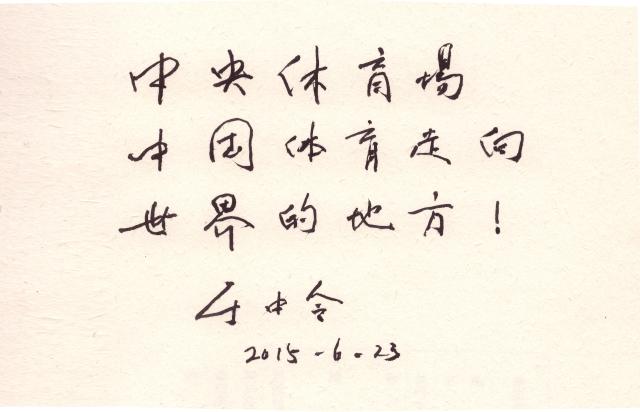 中央体育場
中国体育走向
世界的地方！
中令
2015-6-23